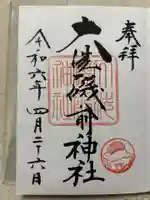 奉拝
大洗磯前神社
令和六年四月二十六日